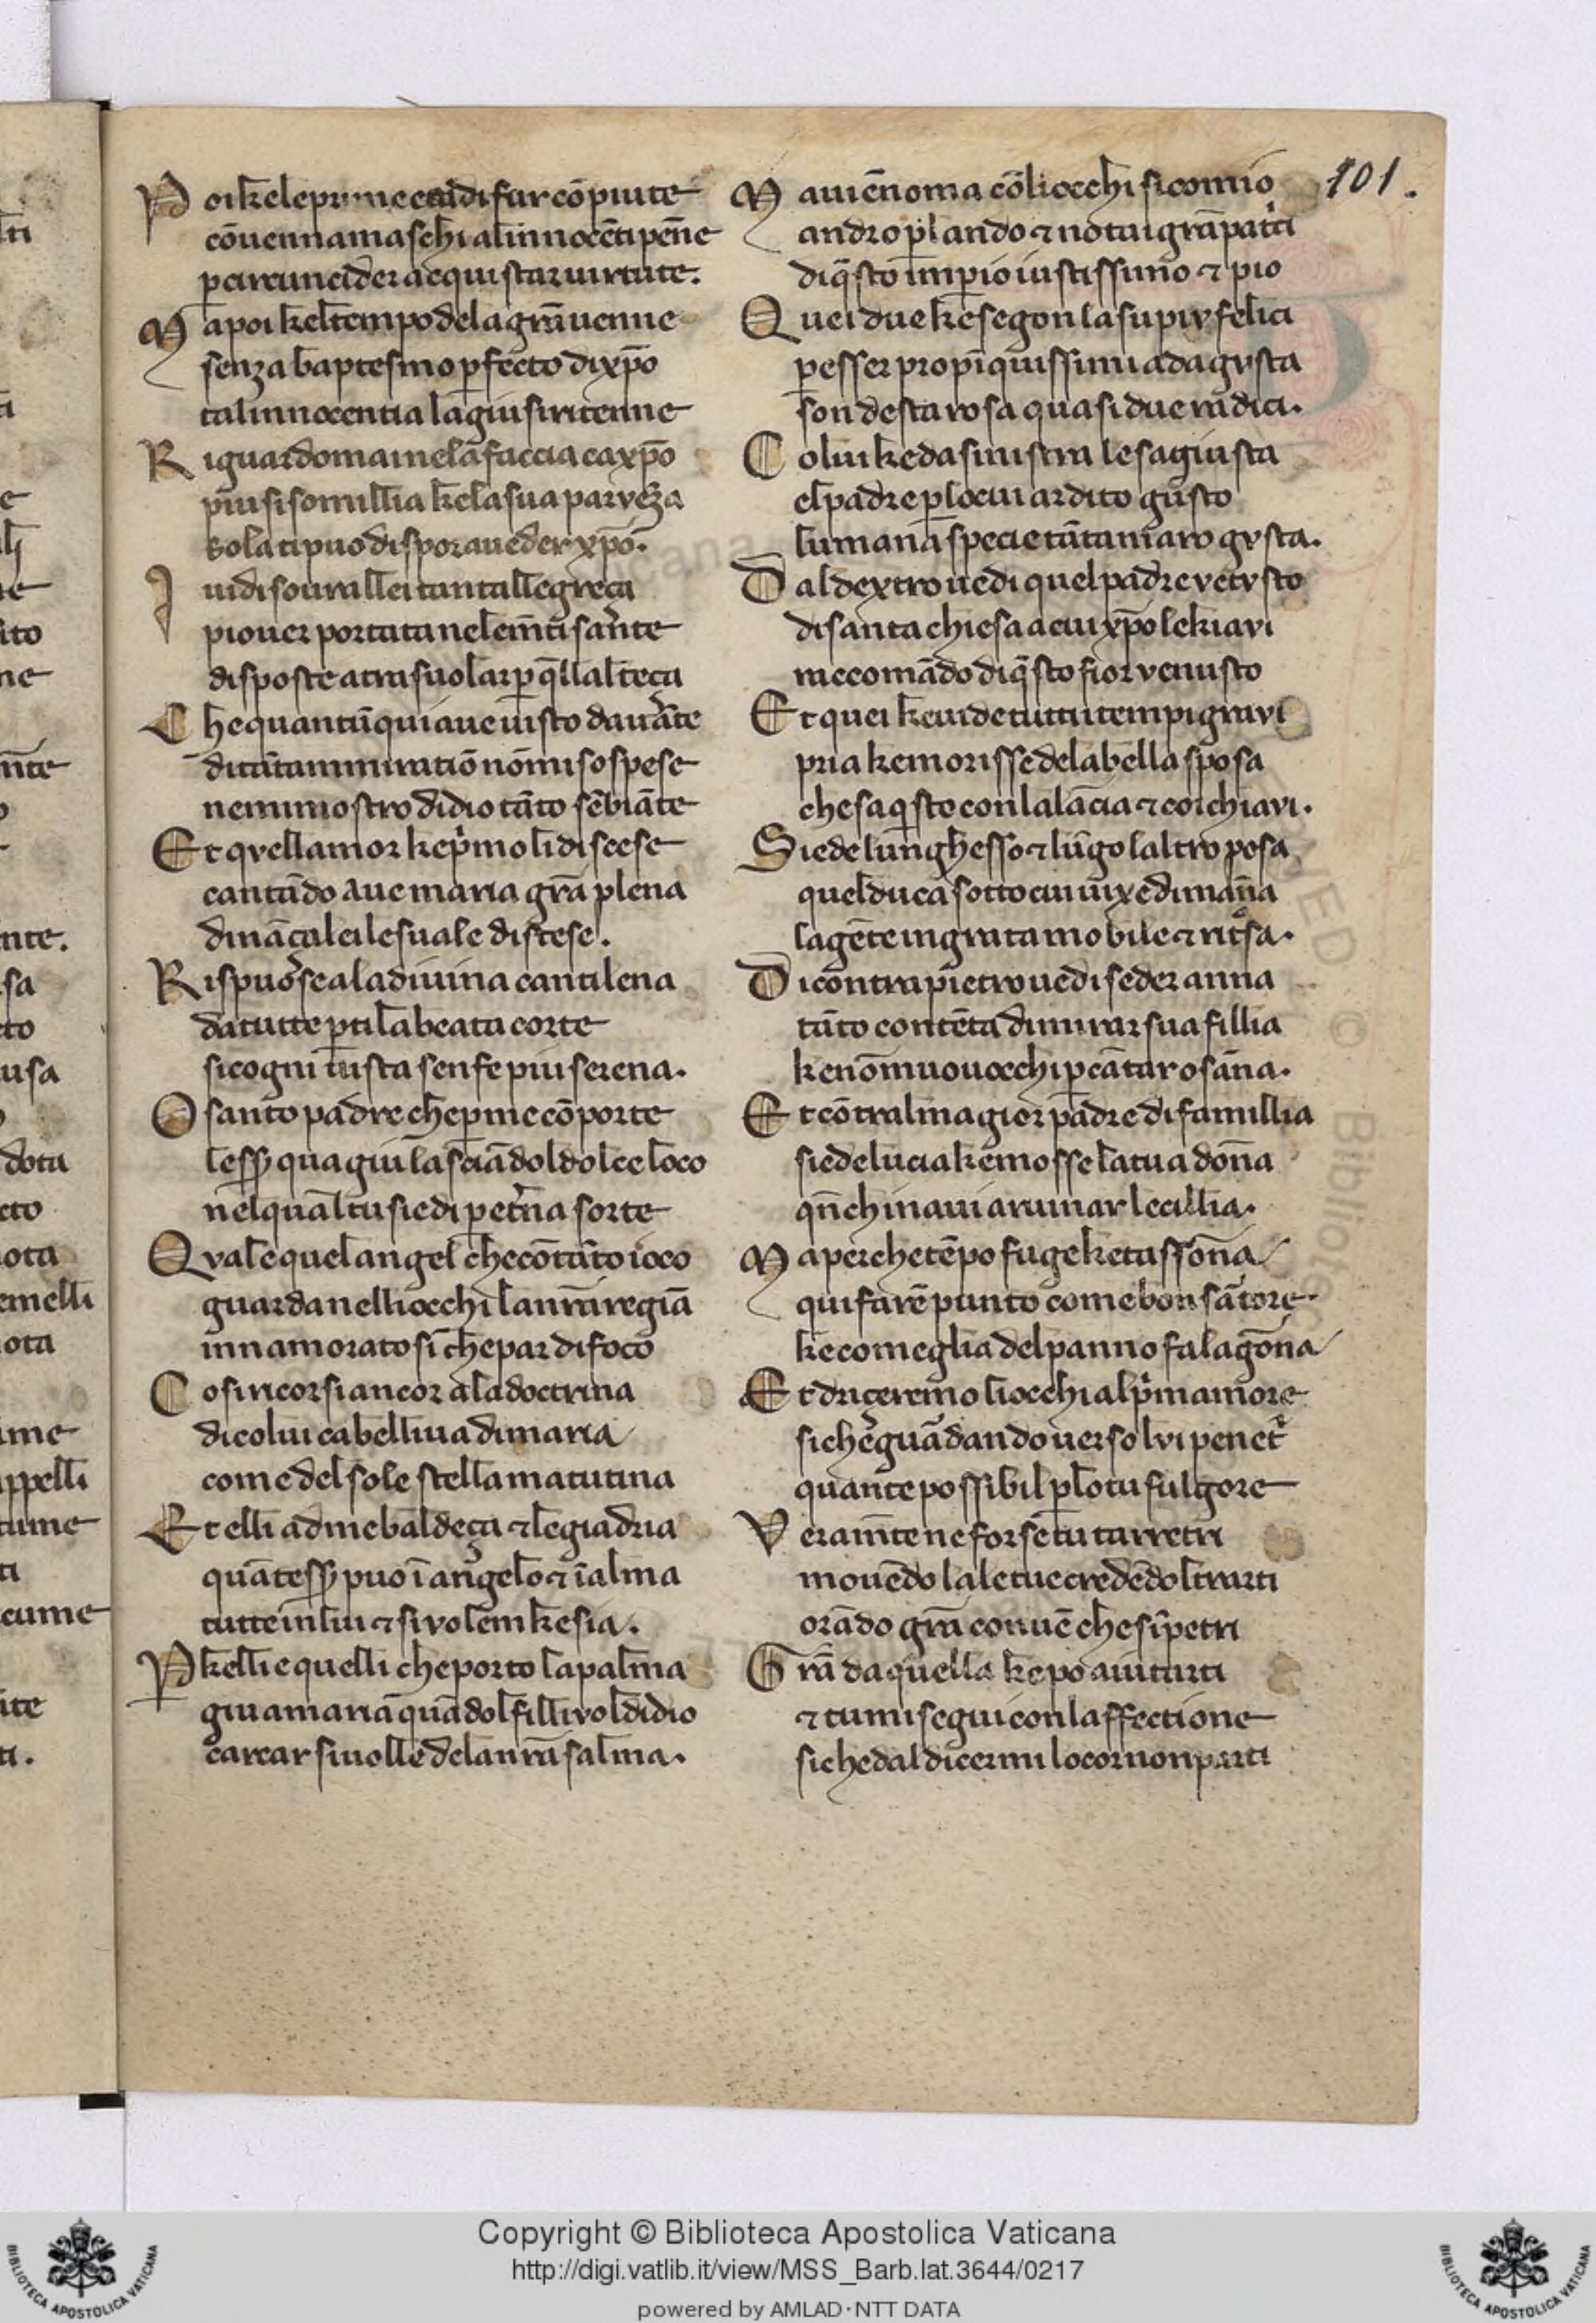 Poi ke le prime etadi fur cōpiute
cōuenne a maschi a linnocēti pēne
per circuncider acquistar uirtute.
Ma poi kel tempo dela grā uenne
senza baptesmo pfecto di xp̄o
tal innocentia la giu si ritenne
Riguardomai nela faccia ca xp̄o
piu si somillia ke la sua parveza
sola ti puo dispor a ueder xp̄o.
Iuidi soura llei tanta llegreça
piouer portata nele mēti sāte
disposte a trasuolar p q̄lla lteça
Che quantūqui aue uisto dauāte
di tāta mmiratiō nō mi sospese
ne mi mostro di dio tāto sēbiāte
Et qvellamor ke pimo li discese
cantādo aue maria grā plena
dināçi a lei le sua le distese.
Rispuose a la diuina cantilena
da tutte pti la beata corte
sicogni uista sen fe piu serena.
O santo padre che p me cōporte
lessr qua giu lasciādol dolce loco
nel qual tu siedi p etna sorte
Qval e quel angel che cō tāto ioco
guarda nelli occhi la nrā regiā
innamorato si che par di foco
Cosi ricorsi ancor a la doctrina
di colui cabelliua di maria
come del sole stella matutina
Et elli ad me baldeça & legiadria
quātessr puo ī angelo & ī alma
tutte in lui & si volem ke sia.
Pkelli e quelli che porto la palma
giu a maria quādol filliol didio
carcar si uolle dela nrā salma.
Ma uiē noma cō li occhi si comio 101.
andro plando & nota i grā patici
di q̄sto impio iustissimo & pio
Quei due ke segon la su piv felici
p esser propinquissimi ad agvsta
son desta rosa quasi due radici.
Colui ke da sinistra le sagiusta
el padre p lo cui ardito gusto
lumana specie tāta maro gvsta.
Dal dextro uedi quel padre vetvsto
di santa chiesa a cui xp̄o le kiavi
raccomādo di q̄sto fior venusto
Et quei ke uide tutti i tempi gravi
pria ke morisse dela bella sposa
che saq̄sto con la lācia & coi chiavi.
Siede lunghesso & lūgo laltro posa
quel duca sotto cui uixe di māna
la gēte ingrata mobile & ritsa.
Di contra pietro uedi seder anna
tāto contēta di mirar sua fillia
ke nō muouocchi p cātar osāna.
Et cōtra l magior padre di famillia
siede lucia ke mosse la tua dōna
qn̄ chinaui a ruinar le cillia.
Ma perche tēpo fuge ke tassōna
qui farē punto come bon sātore
ke come glia del panno fa la gōna
Et driçeremo li occhi al pimamore
si che guādando uerso lvi penetri
quante possibil p lo tu fulgore
Veramēte ne forse tu tarretri
mouēdo lale tue credēdo ltrarti
orādo grā conuē che si īpetri
Grā da quella ke po aiutarti
& tu mi segui con laffectione
si che dal dicer mi lo cor non parti
Copyright © Biblioteca Apostolica Vaticana
http://digi.vatlib.it/view/MSS_Barb.lat.3644/0217
powered by AMLAD·NTT DATA